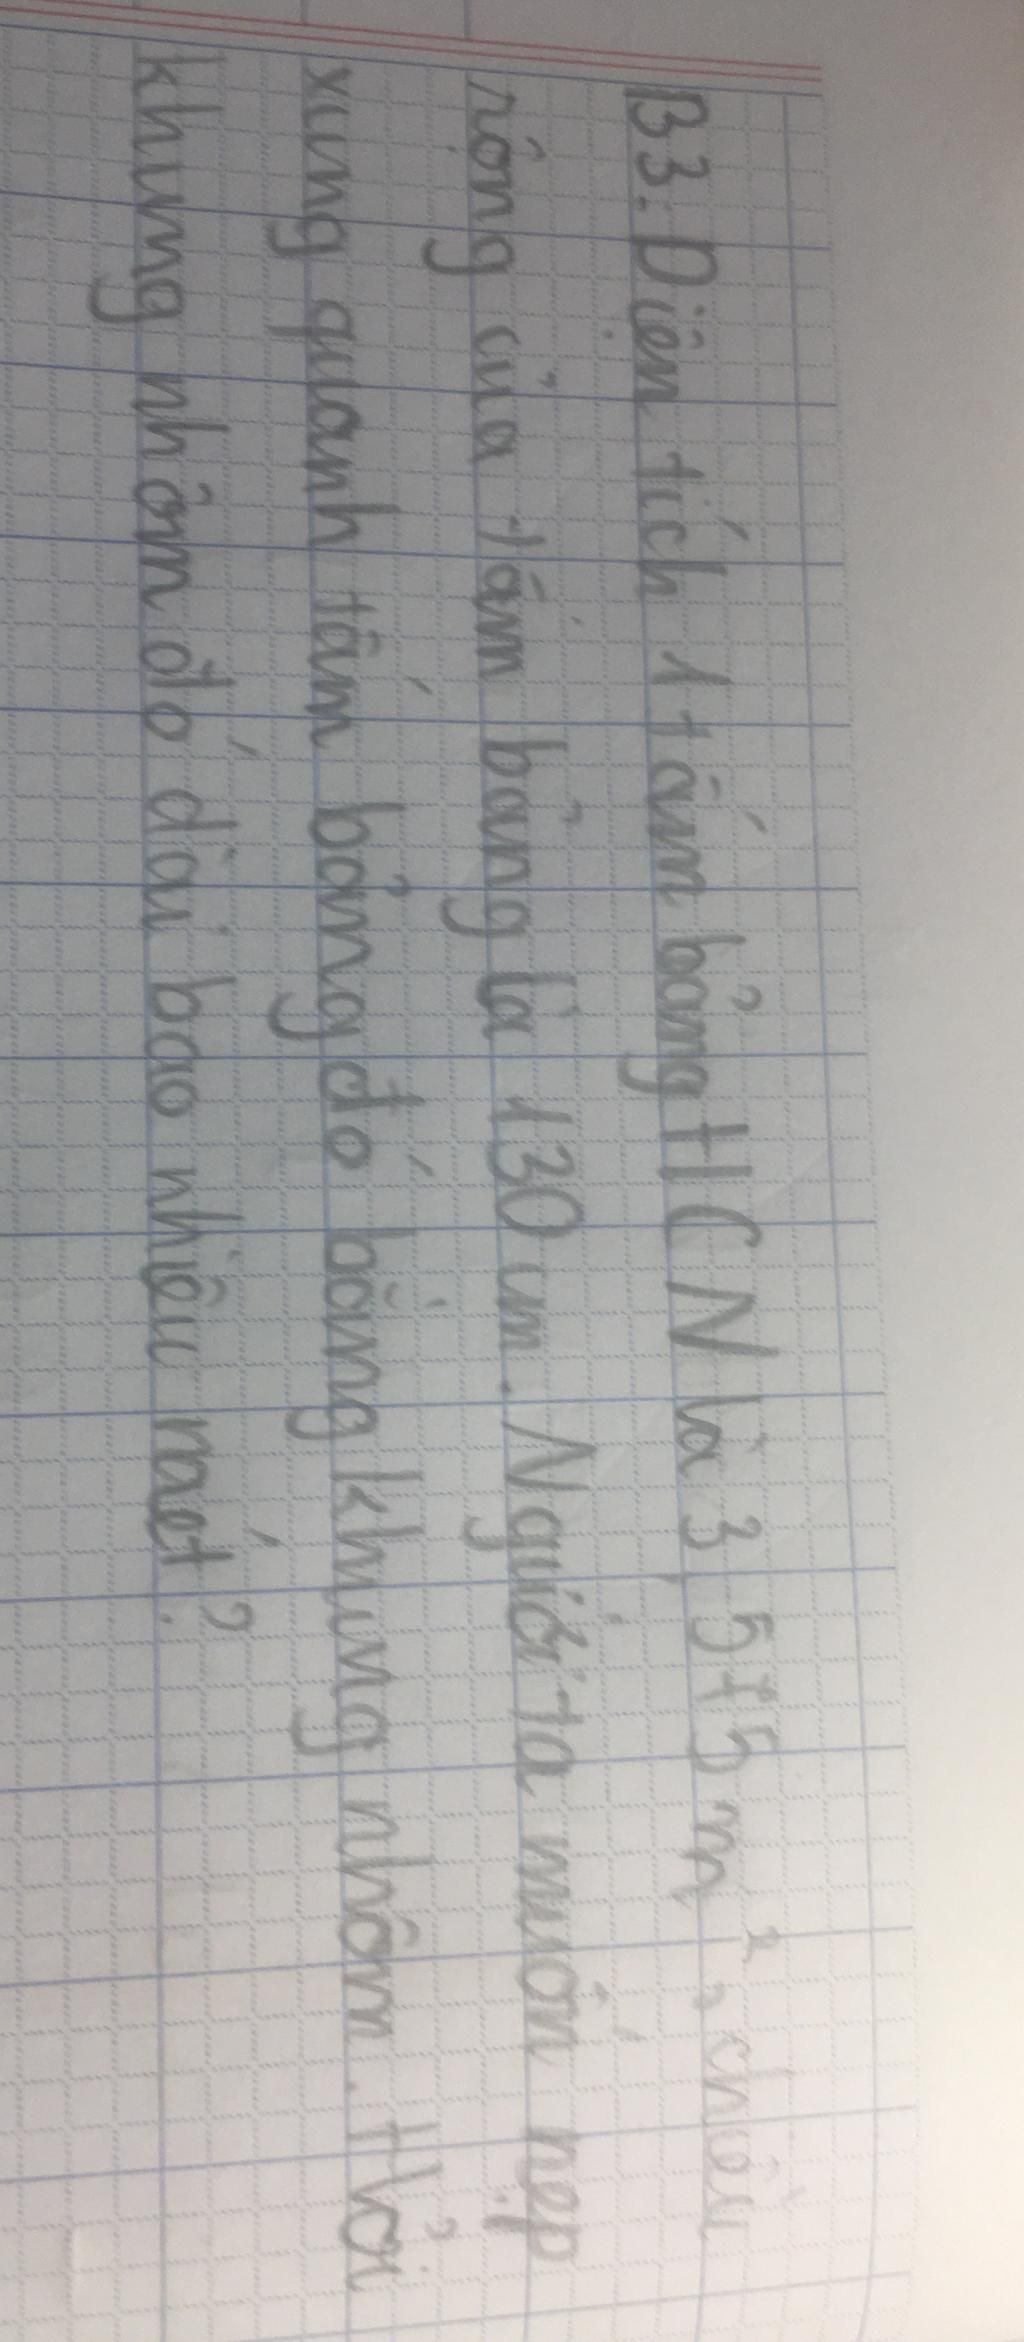 B3. Diện tích 1 tấm bảng HCN là 3,575 m², chiều
rộng của tấm bảng là 130 cm. Người ta muốn nẹp
xung quanh tấm bảng đó bằng khung nhôm. Hỏi
khung nhôm đó dài bao nhiêu mét?